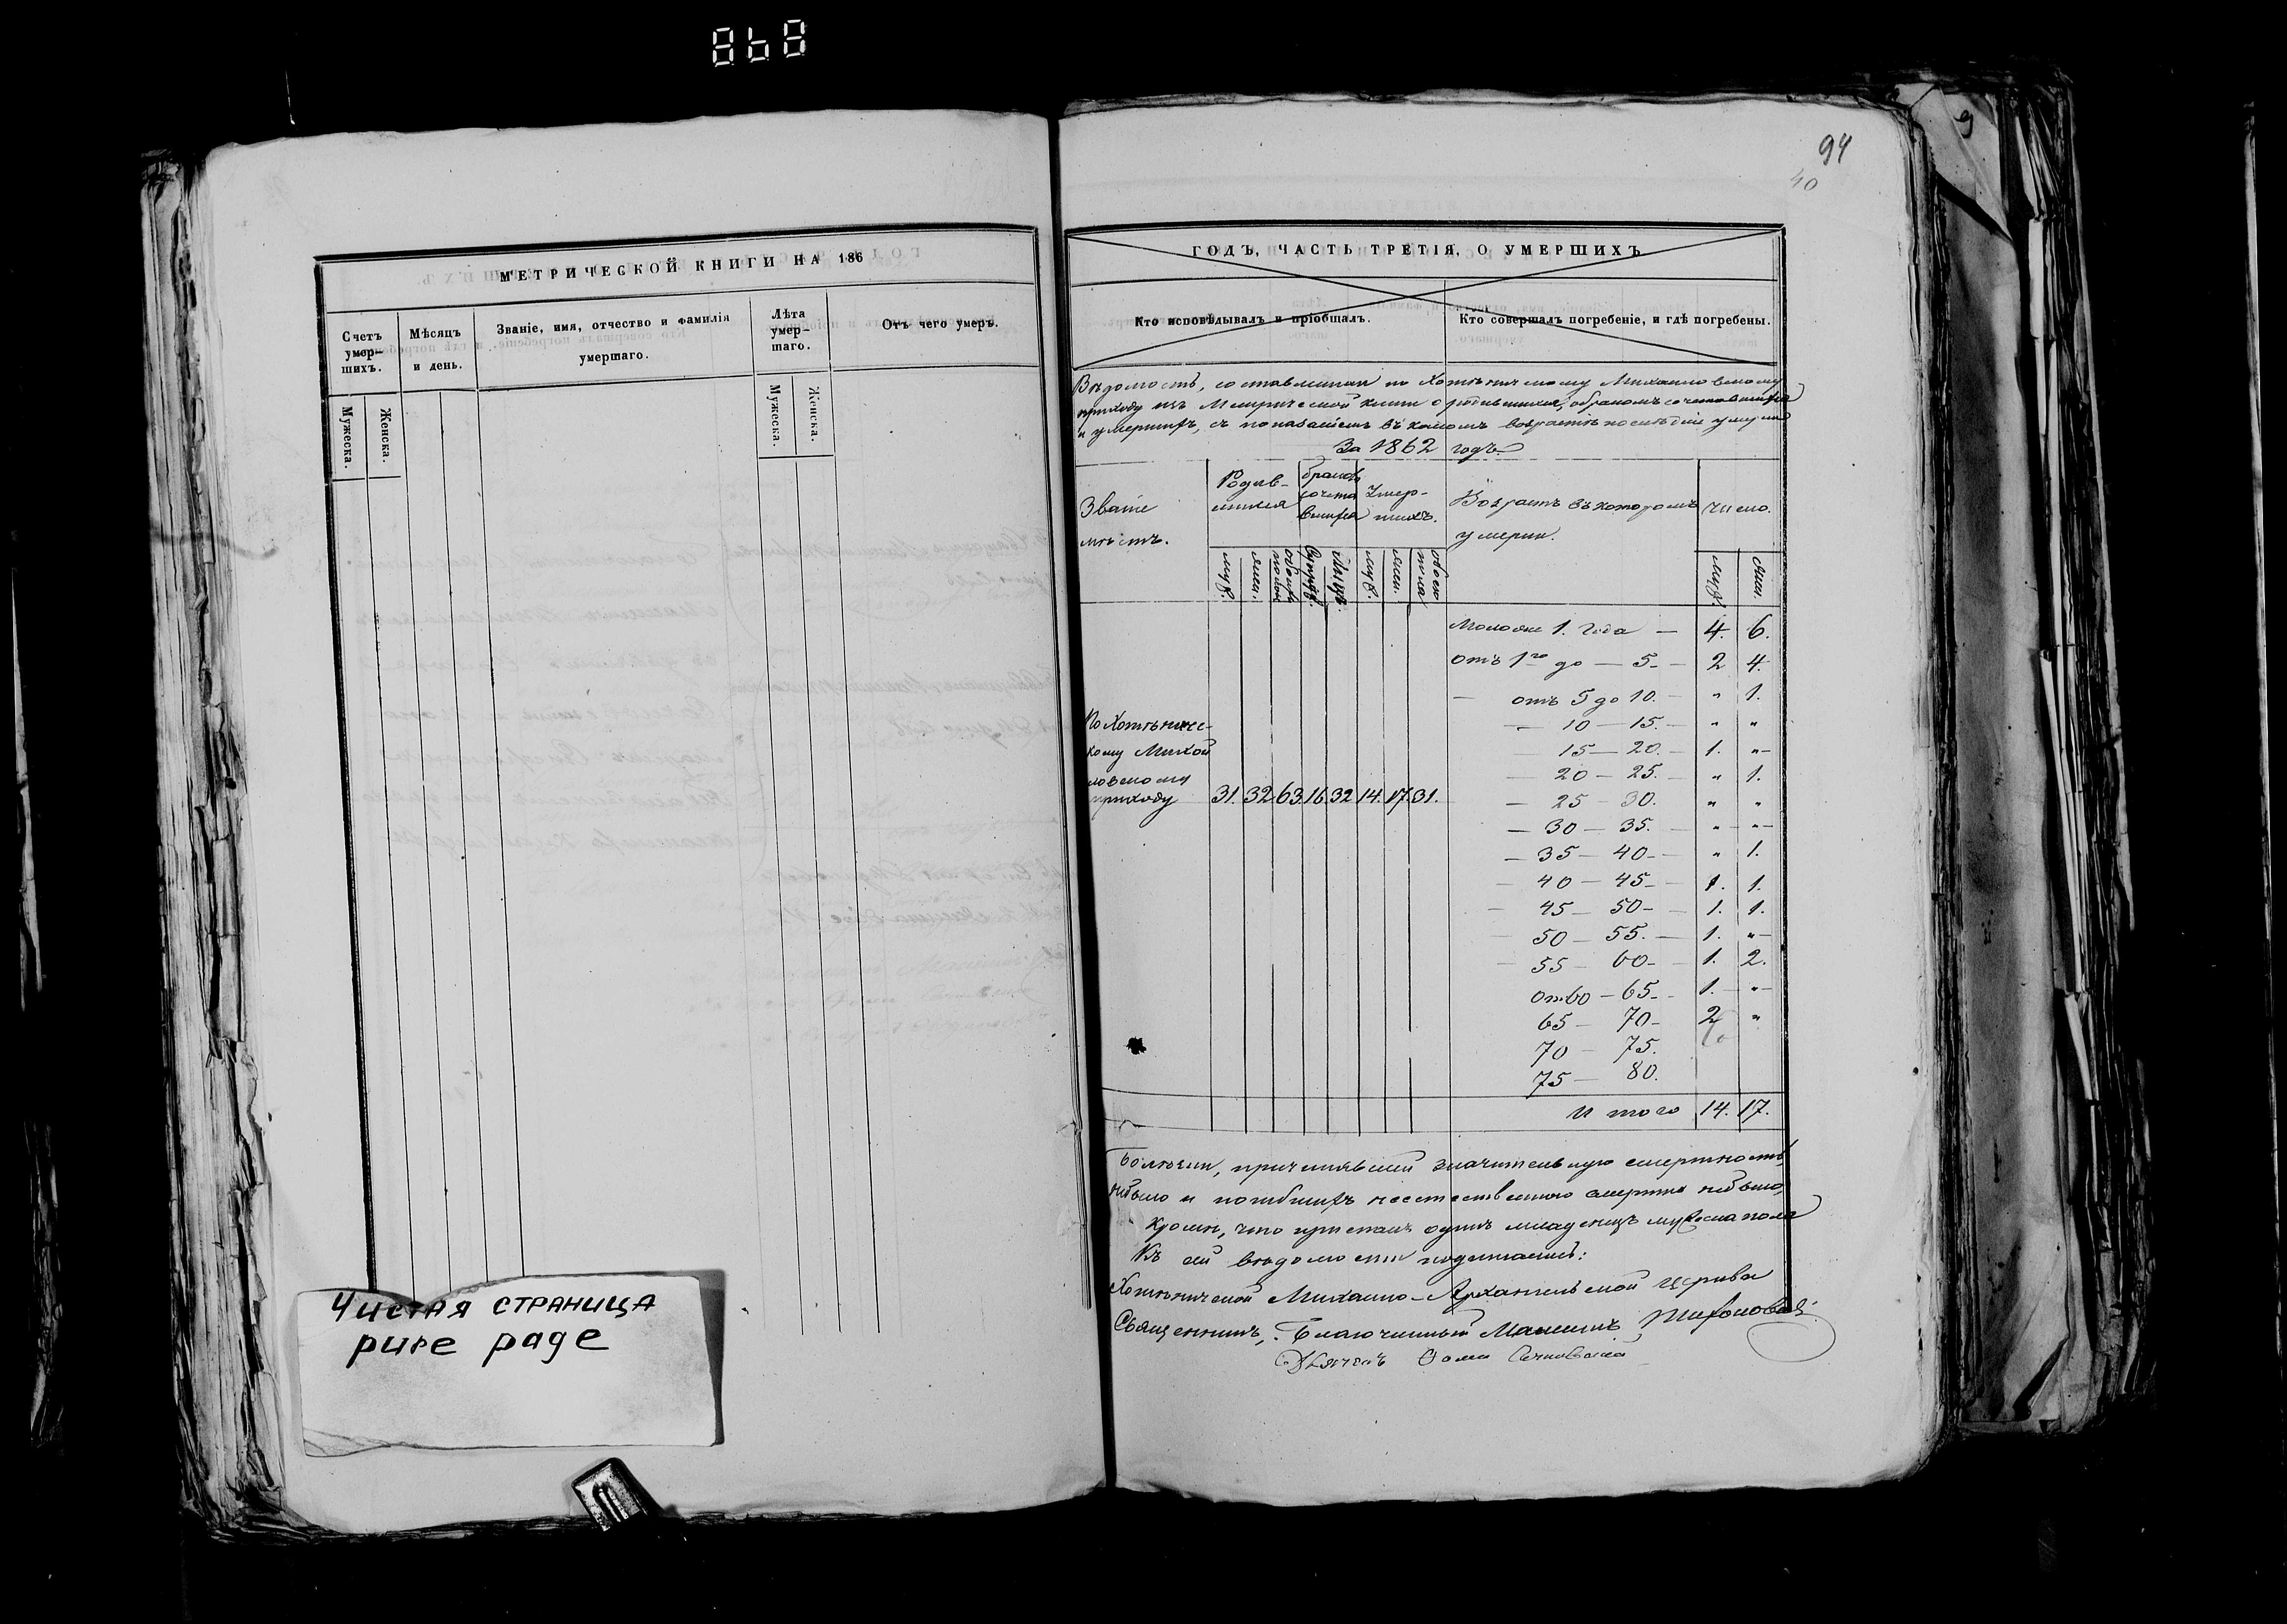 868
МЕТРИЧЕСКОЙ КНИГИ НА 186
Счетъ умер-шихъ.
Мужеска.
Женска.
Мѣсяцъ и день.
Званіе, имя, отчество и фамилія умершаго.
Лѣта умер-шаго.
Мужеска.
Женска.
Отъ чего умеръ.
Чистая страница
pure page
94
40
ГОДЪ, ЧАСТЬ ТРЕТІЯ, О УМЕРШИХЪ
Кто исповѣдывалъ и пріобщалъ.
Кто совершалъ погребеніе, и гдѣ погребены.
Вѣдомость, составленная по Хотѣничскому Михайловскому
приходу изъ Метрической книги о родившихся, бракомъ сочетавшихся
и умершихъ, съ показаніемъ въ какомъ возрастѣ послѣдніе умерли
За 1862 годъ
Званіе мѣстъ.
Родив-шихся
браковъ сочета вшихся
Умер-шихъ.
Возрастъ въ которомъ умерли.
число.
муж.
жен.
обоего пола
муж.
жен.
обоего пола
муж.
жен.
По Хотѣничес-
кому Михай
ловскому
приходу 31. 32. 63. 16. 32 14. 17. 31.
Моложе 1. года — 4. 6.
отъ 1го до — 5. — 2 4.
— отъ 5 до 10. — " 1.
— 10 — 15. — " "
15 — 20. — 1. "
— 20 — 25. — " 1.
— 25 — 30. " "
— 30 — 35. — " "
— 35 — 40 — " 1.
— 40 — 45 — 1. 1.
— 45 — 50 — 1. 1.
— 50 — 55. — 1. "
— 55 — 60 — 1. 2.
от 60 — 65. — 1. "
65 — 70 — 2 "
70 — 75.
75 — 80.
Итого 14. 17.
Болѣзни, причинявшей значительную смертность,
небыло и погибшихъ неестественною смертію небыло,
кромѣ, что приспанъ одинъ младенецъ мужеска пола
Къ сей вѣдомости подписались:
Хотѣничской Михаило-Архангельской церкви
Священникъ, Благочинный Тихоновъ
Дьячекъ Ѳома